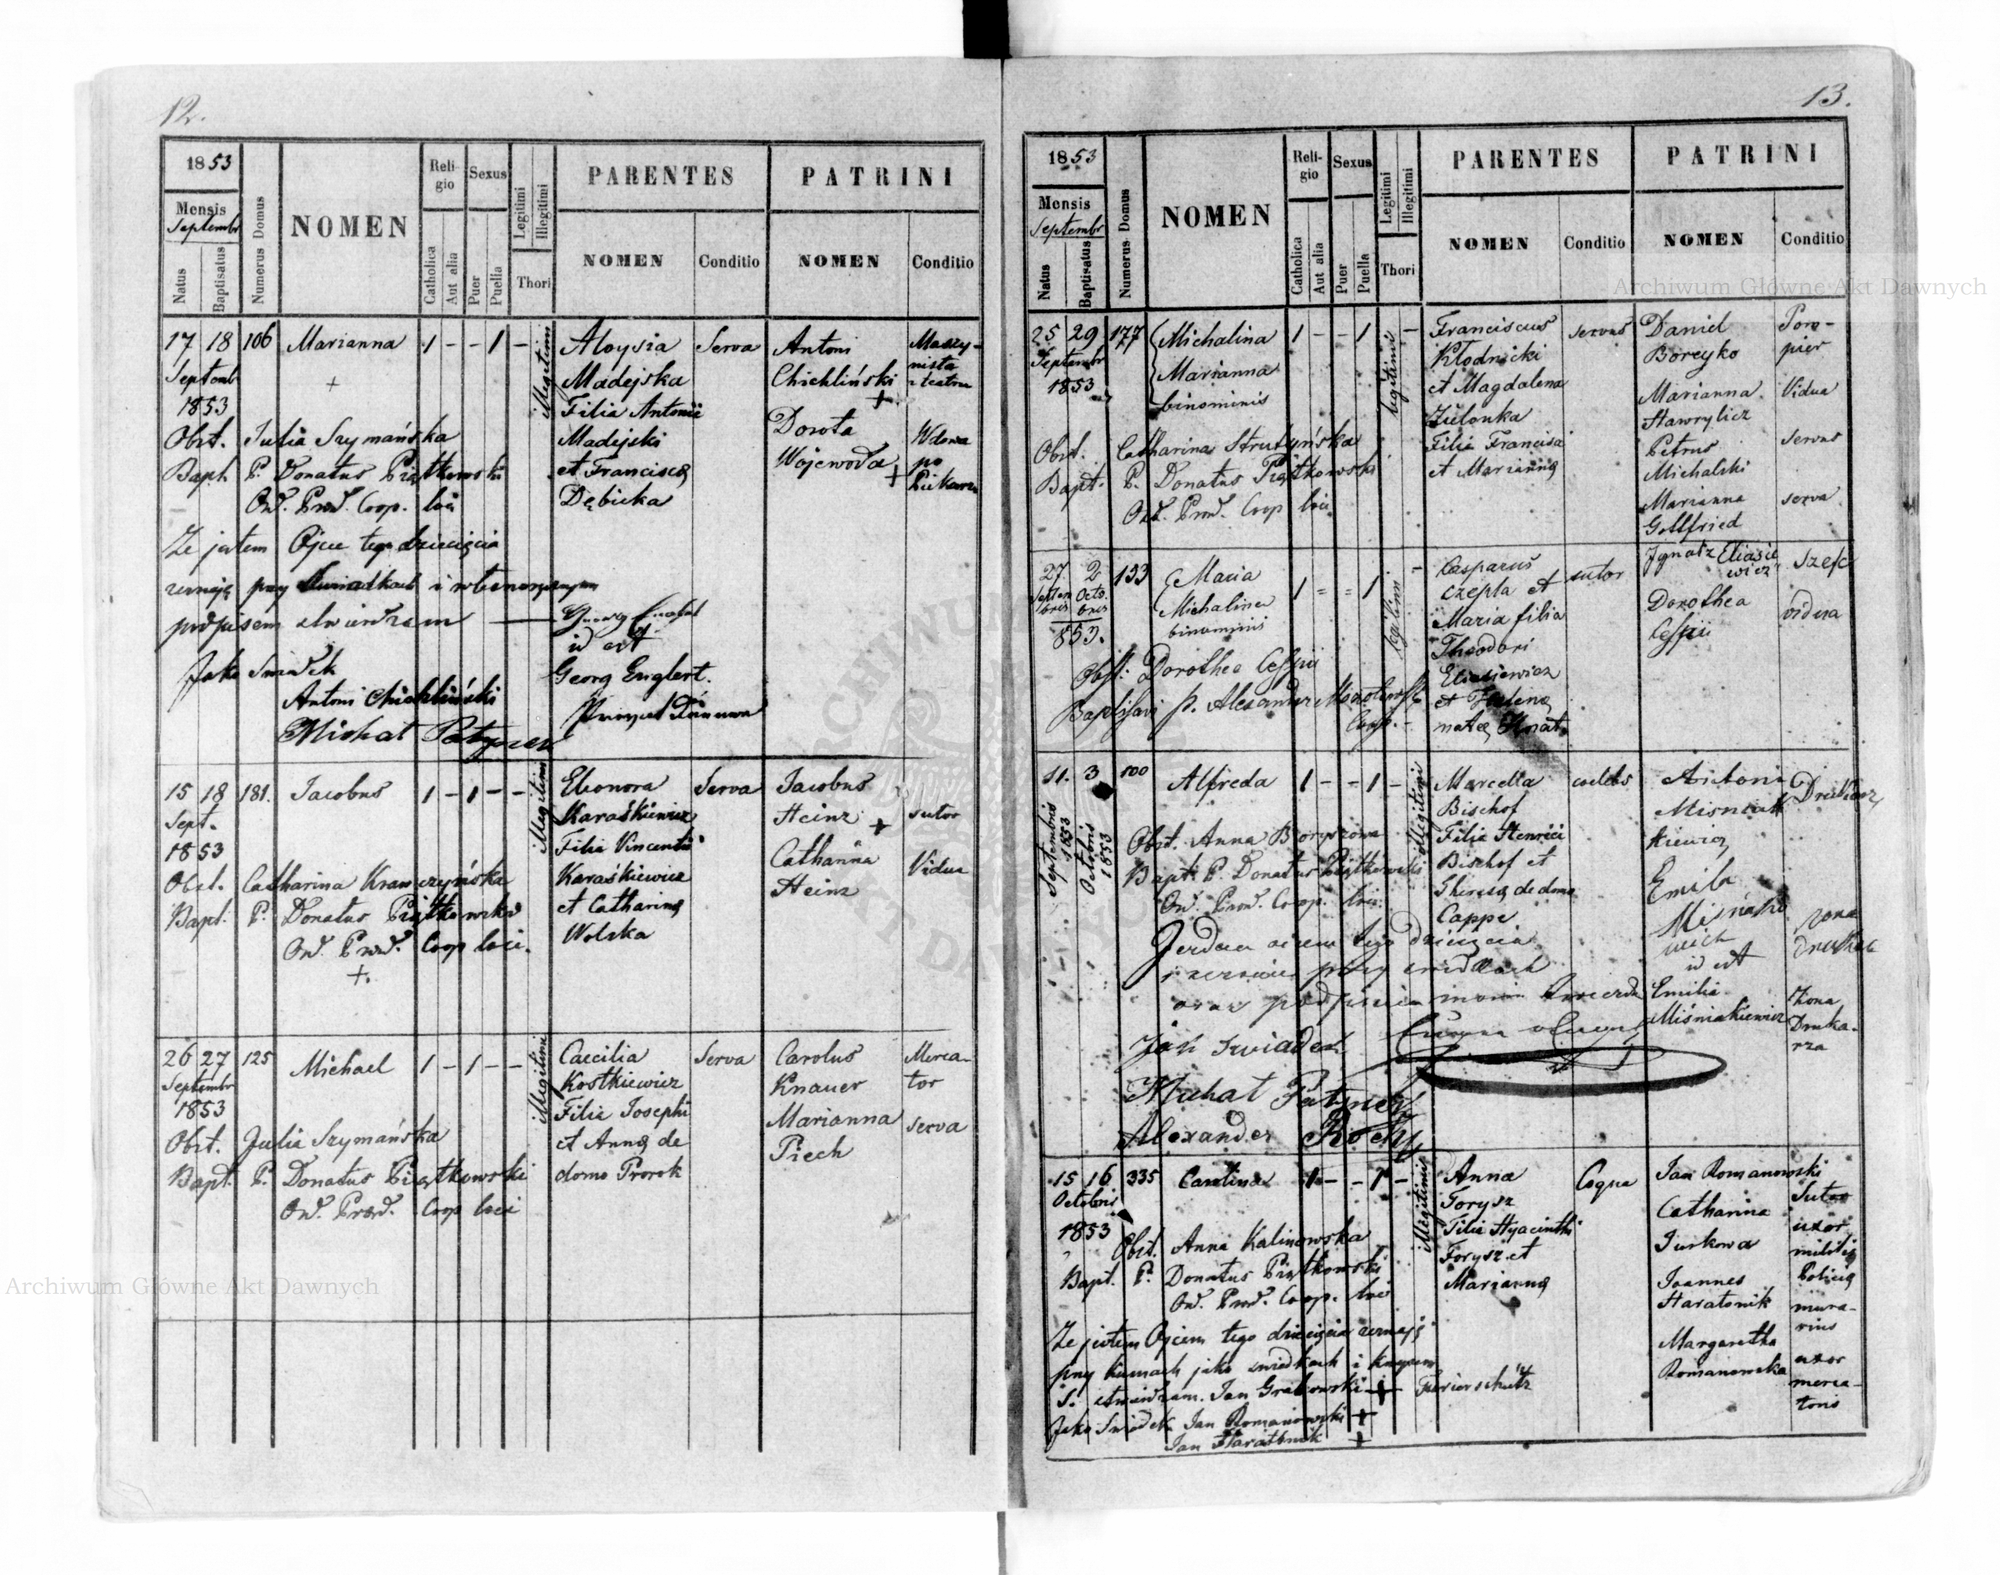 12.
1853
Mensis
Septembr
Natus
Baptisatus
Numerus Domus
NOMEN
Religio
Catholica
Aut alia
Sexus
Puer
Puella
Legitimi
Illegitimi
Thori
PARENTES
NOMEN
Conditio
PATRINI
NOMEN
Conditio
17 18 106 Marianna 1 - - 1 - Illegitimi
Septemb
1853
+
Aloysia
Madejska
Filia Antonii
Madejski
et Francisca
Dębicka
Serva
Antoni
Chichliński
+
Dorota
Wojewoda
+
Maszy-
nista
z teatru
Wdowa
po
Obst. Julia Szymańska
Bapt P. Donatus Piątkowski
Ord. Praed. Coop. loci
Że jestem Ojcem tego dziecięcia
zeznaję przy Świadkach i własnoręcznym
podpisem stwierdzam
id est
Georg Englert.
Jako Świadek
Antoni Chichliński
Michał Patyner
15 18 181. Jacobus 1 - 1 - - Illegitimi
Sept.
1853
Eleonora
Karaśkiewicz
Filia Vincentii
Karaśkiewicz
et Catharina
Wolska
Serva
Jacobus
Heinz
+
Catharina
Heinz
sutor
Vidua
Obst. Catharina Krawczyńska
Bapt. P. Donatus Piątkowski
Ord. Praed. Coop loci.
+.
26 27 125 Michael 1 - 1 - - Illegitimi
Septembr
1853
Caecilia
Kostkiewicz
Filia Josephi
et Anna de
domo Prorok
Serva
Carolus
Knauer
Marianna
Piech
Merca-
tor
serva
Obst. Julia Szymańska
Bapt. P. Donatus Piątkowski
Ord. Praed. Coop loci
13.
1853
Mensis
Septembr
Natus
Baptisatus
Numerus Domus
NOMEN
Religio
Catholica
Aut alia
Sexus
Puer
Puella
Legitimi
Illegitimi
Thori
PARENTES
NOMEN
Conditio
PATRINI
NOMEN
Conditio
25 29 177 Michalina 1 - - 1 legitimi -
Septembr
1853
Marianna
binominis
Franciscus
Kłodnicki
et Magdalena
Zielonka
Filia Francisci
et Marianna
servus
Daniel
Boreyko
Marianna
Hawrylicz
Petrus
Michalski
Marianna
Gottfried
Pom-
pier
Vidua
servus
serva
Obst. Catharina Strutyńska
Bapt. P. Donatus Piątkowski
Ord. Praed. Coop loci
27 2 133 Maria 1 = = 1 legitimi -
Septem Octo
bris bris
853.
Michalina
binominis
Casparus
Czepla et
Maria filia
Theodori
Eliasiewicz
et Helena
sutor
Ignatz Eliasie
wicz
Dorothea
Szefc
vidua
Obst: Dorothea
Baptisavi P. Alexander
Coop.
11. 3 100 Alfreda 1 - - 1 - Illegitimi
Septembris 1853
Octobris 1853
Marcella
Bischof
Filia Henrici
Bischof et
Theresa de domo
Cappe
coelebs
Antoni
Emilia
id est
Emilia
Miśniakiewicz
żona
Żona
Druka-
rza
Obst. Anna Boryszowa
Bapt. P. Donatus Piątkowski
Ord. Praed. Coop. loci
Jestem ojcem tego dziecięcia
i zeznaję przy świadkach
Jan świadek
Michał Patyner
Alexander
15 16 335 Carolina 1 - - 1 - Illegitimi
Octobris
1853
Anna
Forysz
Filia Hyacinthi
Forysz et
Marianna
Coqua
Jan Romanowski
Catharina
Jurkowa
Joannes
Haratonik
Margaretha
Romanowska
Sutor
uxor
militis
Policia
mura-
rius
uxor
merca-
toris
Obst. Anna Kalinowska
Bapt. P. Donatus Piątkowski
Ord. Praed. Coop. loci
Że jestem Ojcem tego dziecięcia zeznaję
przy kumach jako świadkach i krzyżem
S. stwierdzam. Jan Grabowski + Feuerschütz
Jako Świadek Jan Romanowski +
Jan Haratonik +
Archiwum Główne Akt Dawnych
Archiwum Główne Akt Dawnych